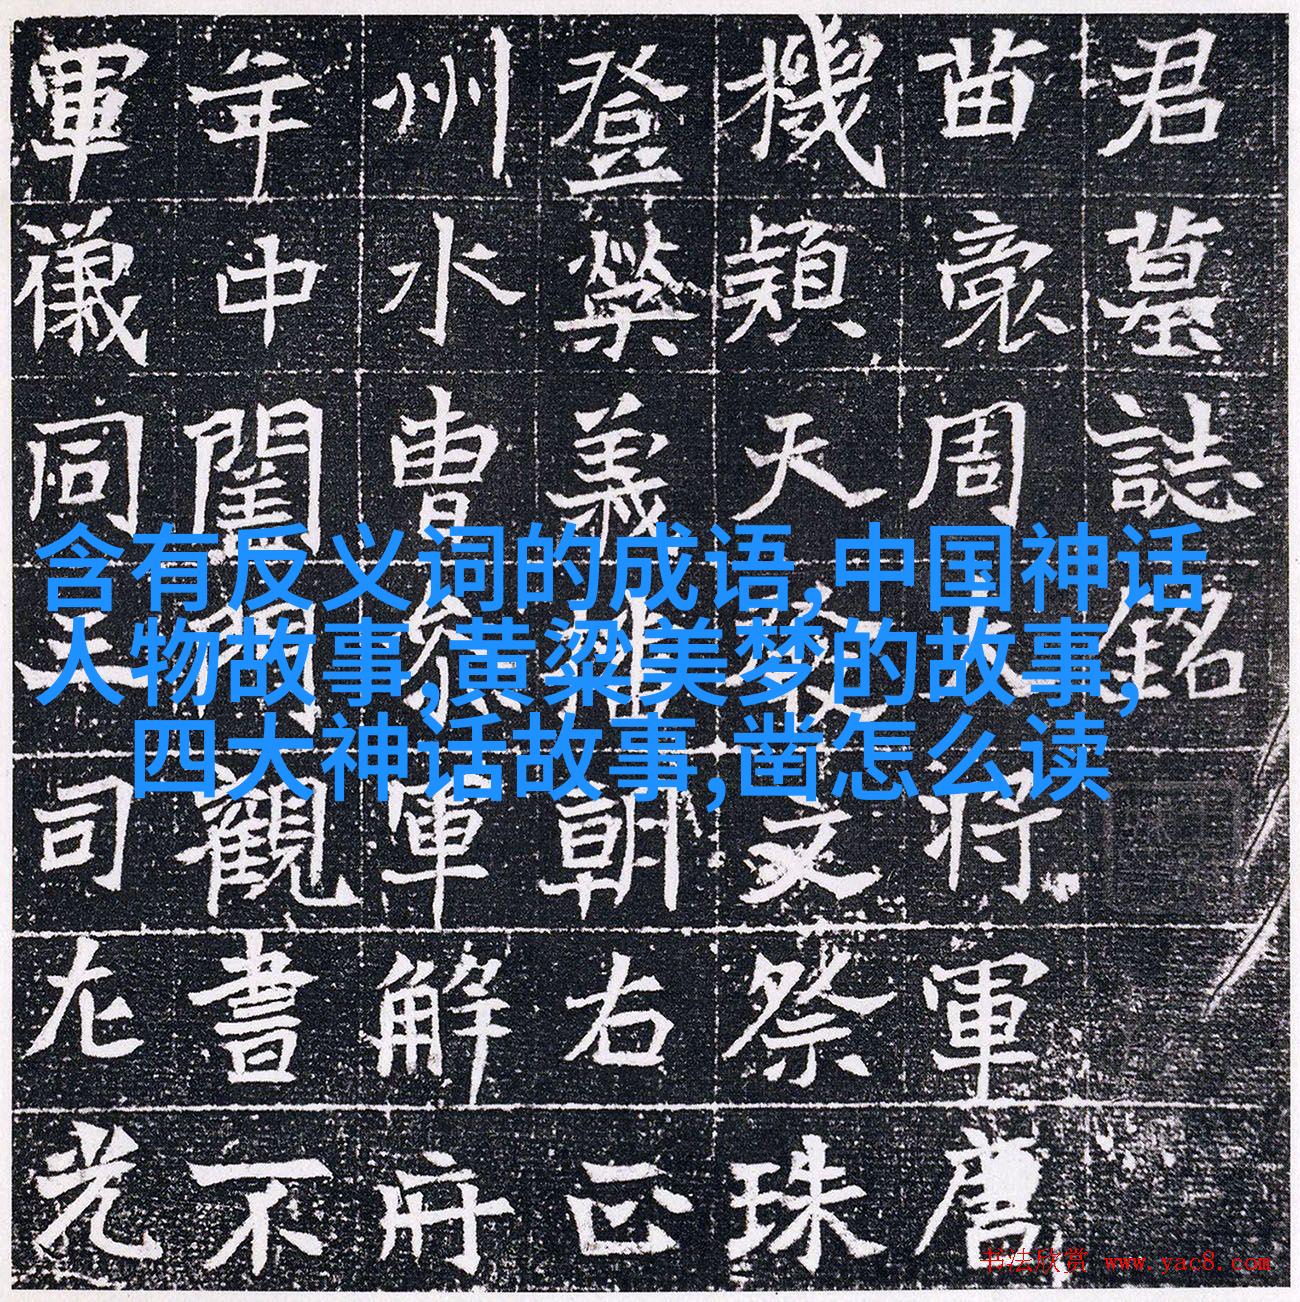 君墓誌銘
苗裔周将軍
機穎天發文祭珠
登榮義朝右正
州水曹參軍解
年中閨門觀書不
軍儀同三司左光
含有反义词的成语,中国神话
人物故事,黄粱美梦的故事,
四大神话故事,凿怎么读
书法欣赏 www.yac8.com